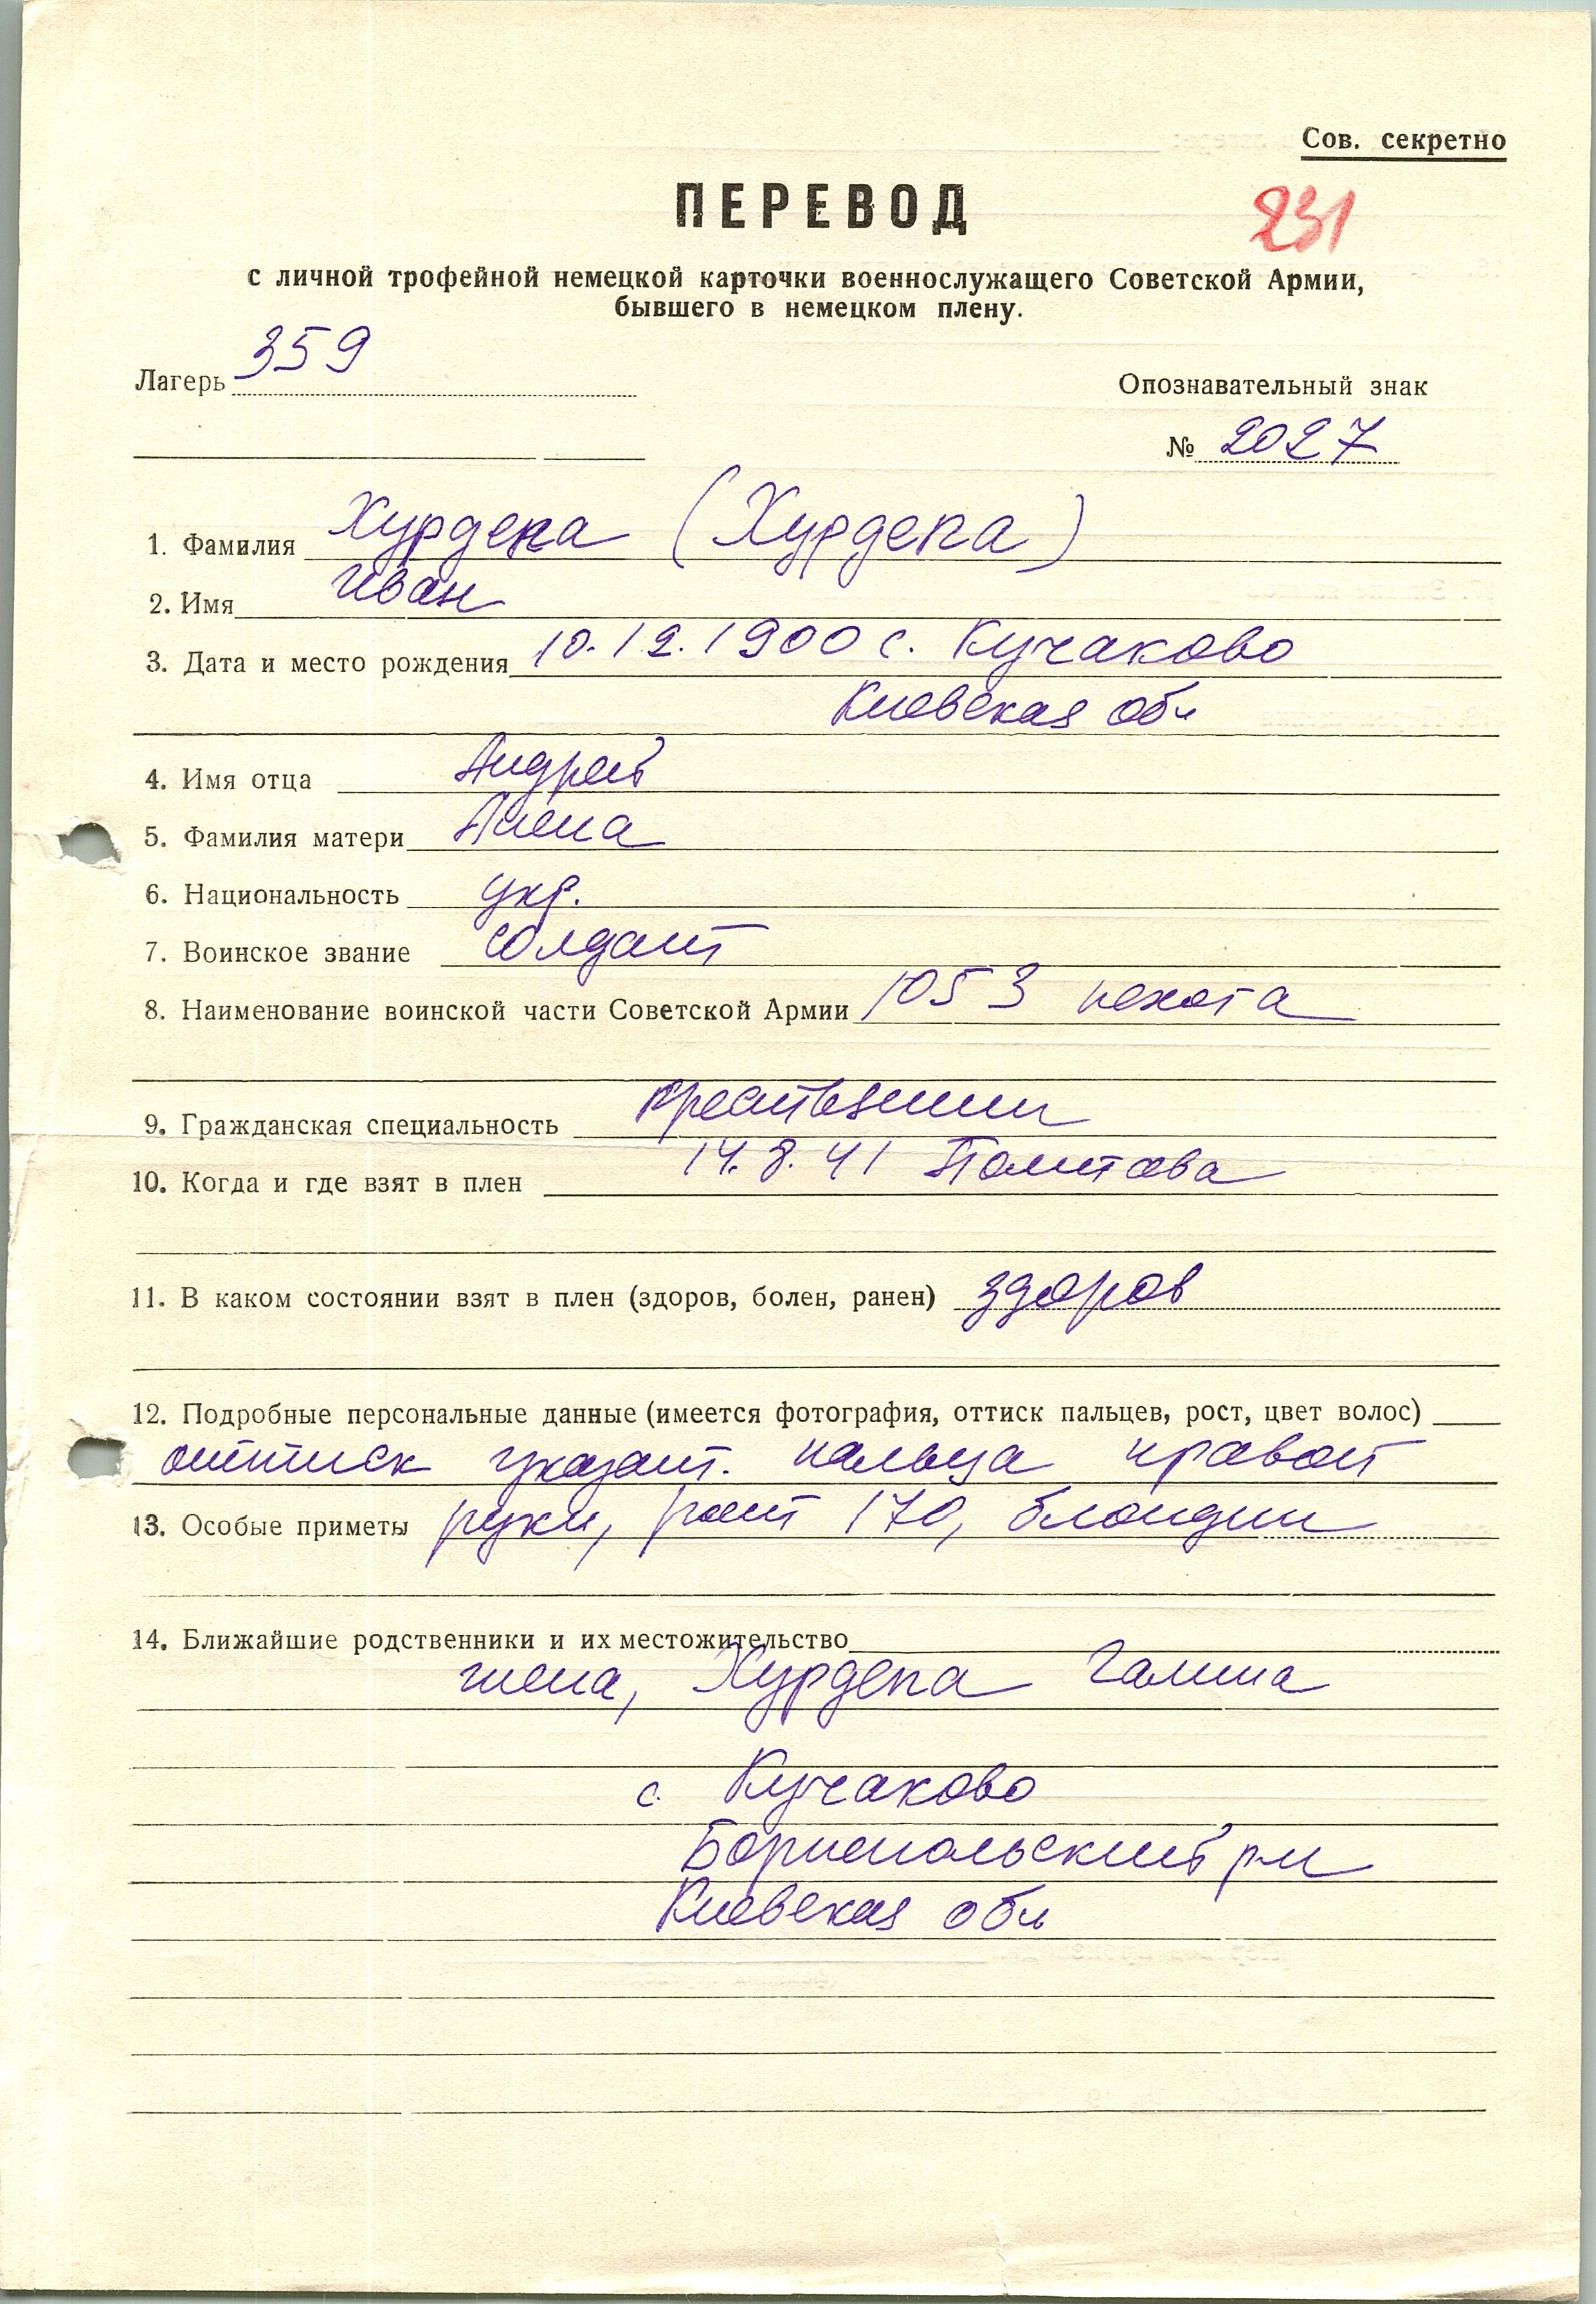 Сов. секретно
ПЕРЕВОД
231
с личной трофейной немецкой карточки военнослужащего Советской Армии,
бывшего в немецком плену.
Лагерь 359
Опознавательный знак
№ 2027
1. Фамилия Хурдепа (Хурдепа)
2. Имя Иван
3. Дата и место рождения 10.12.1900 с. Кучаково
Киевская обл
4. Имя отца Андрей
5. Фамилия матери Анна
6. Национальность укр.
7. Воинское звание солдат
8. Наименование воинской части Советской Армии 1053 пехота
9. Гражданская специальность крестьянин
10. Когда и где взят в плен 14.8.41 Полтава
11. В каком состоянии взят в плен (здоров, болен, ранен) здоров
12. Подробные персональные данные (имеется фотография, оттиск пальцев, рост, цвет волос)
оттиск указат. пальца правой
13. Особые приметы руки, рост 170, блондин
14. Ближайшие родственники и их местожительство
жена, Хурдепа Галина
с. Кучаково
Бориспольский р-н
Киевская обл